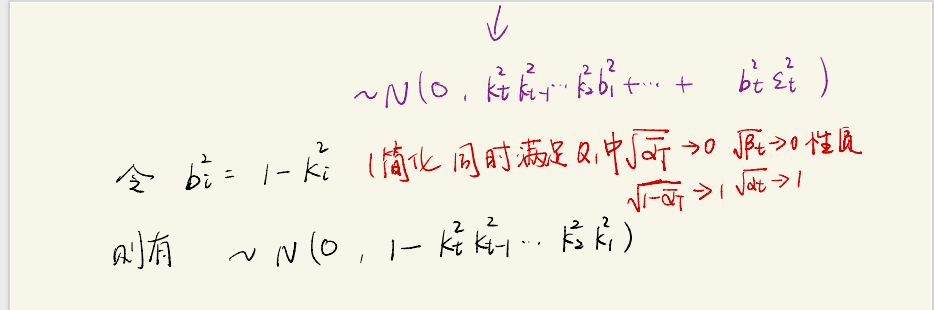 ↓
~N(0, k_t^2 k_{t-1}^2 ⋯ k_2^2 b_1^2 + ⋯ + b_t^2 ε_t^2)
令 b_i^2 = 1 - k_i^2 (简化 同时满足 Q1中 √ᾱ_T → 0 √β_t → 0 性质
√(1-ᾱ_T) → 1 √α_t → 1
则有 ~ N(0, 1 - k_t^2 k_{t-1}^2 ⋯ k_2^2 k_1^2)